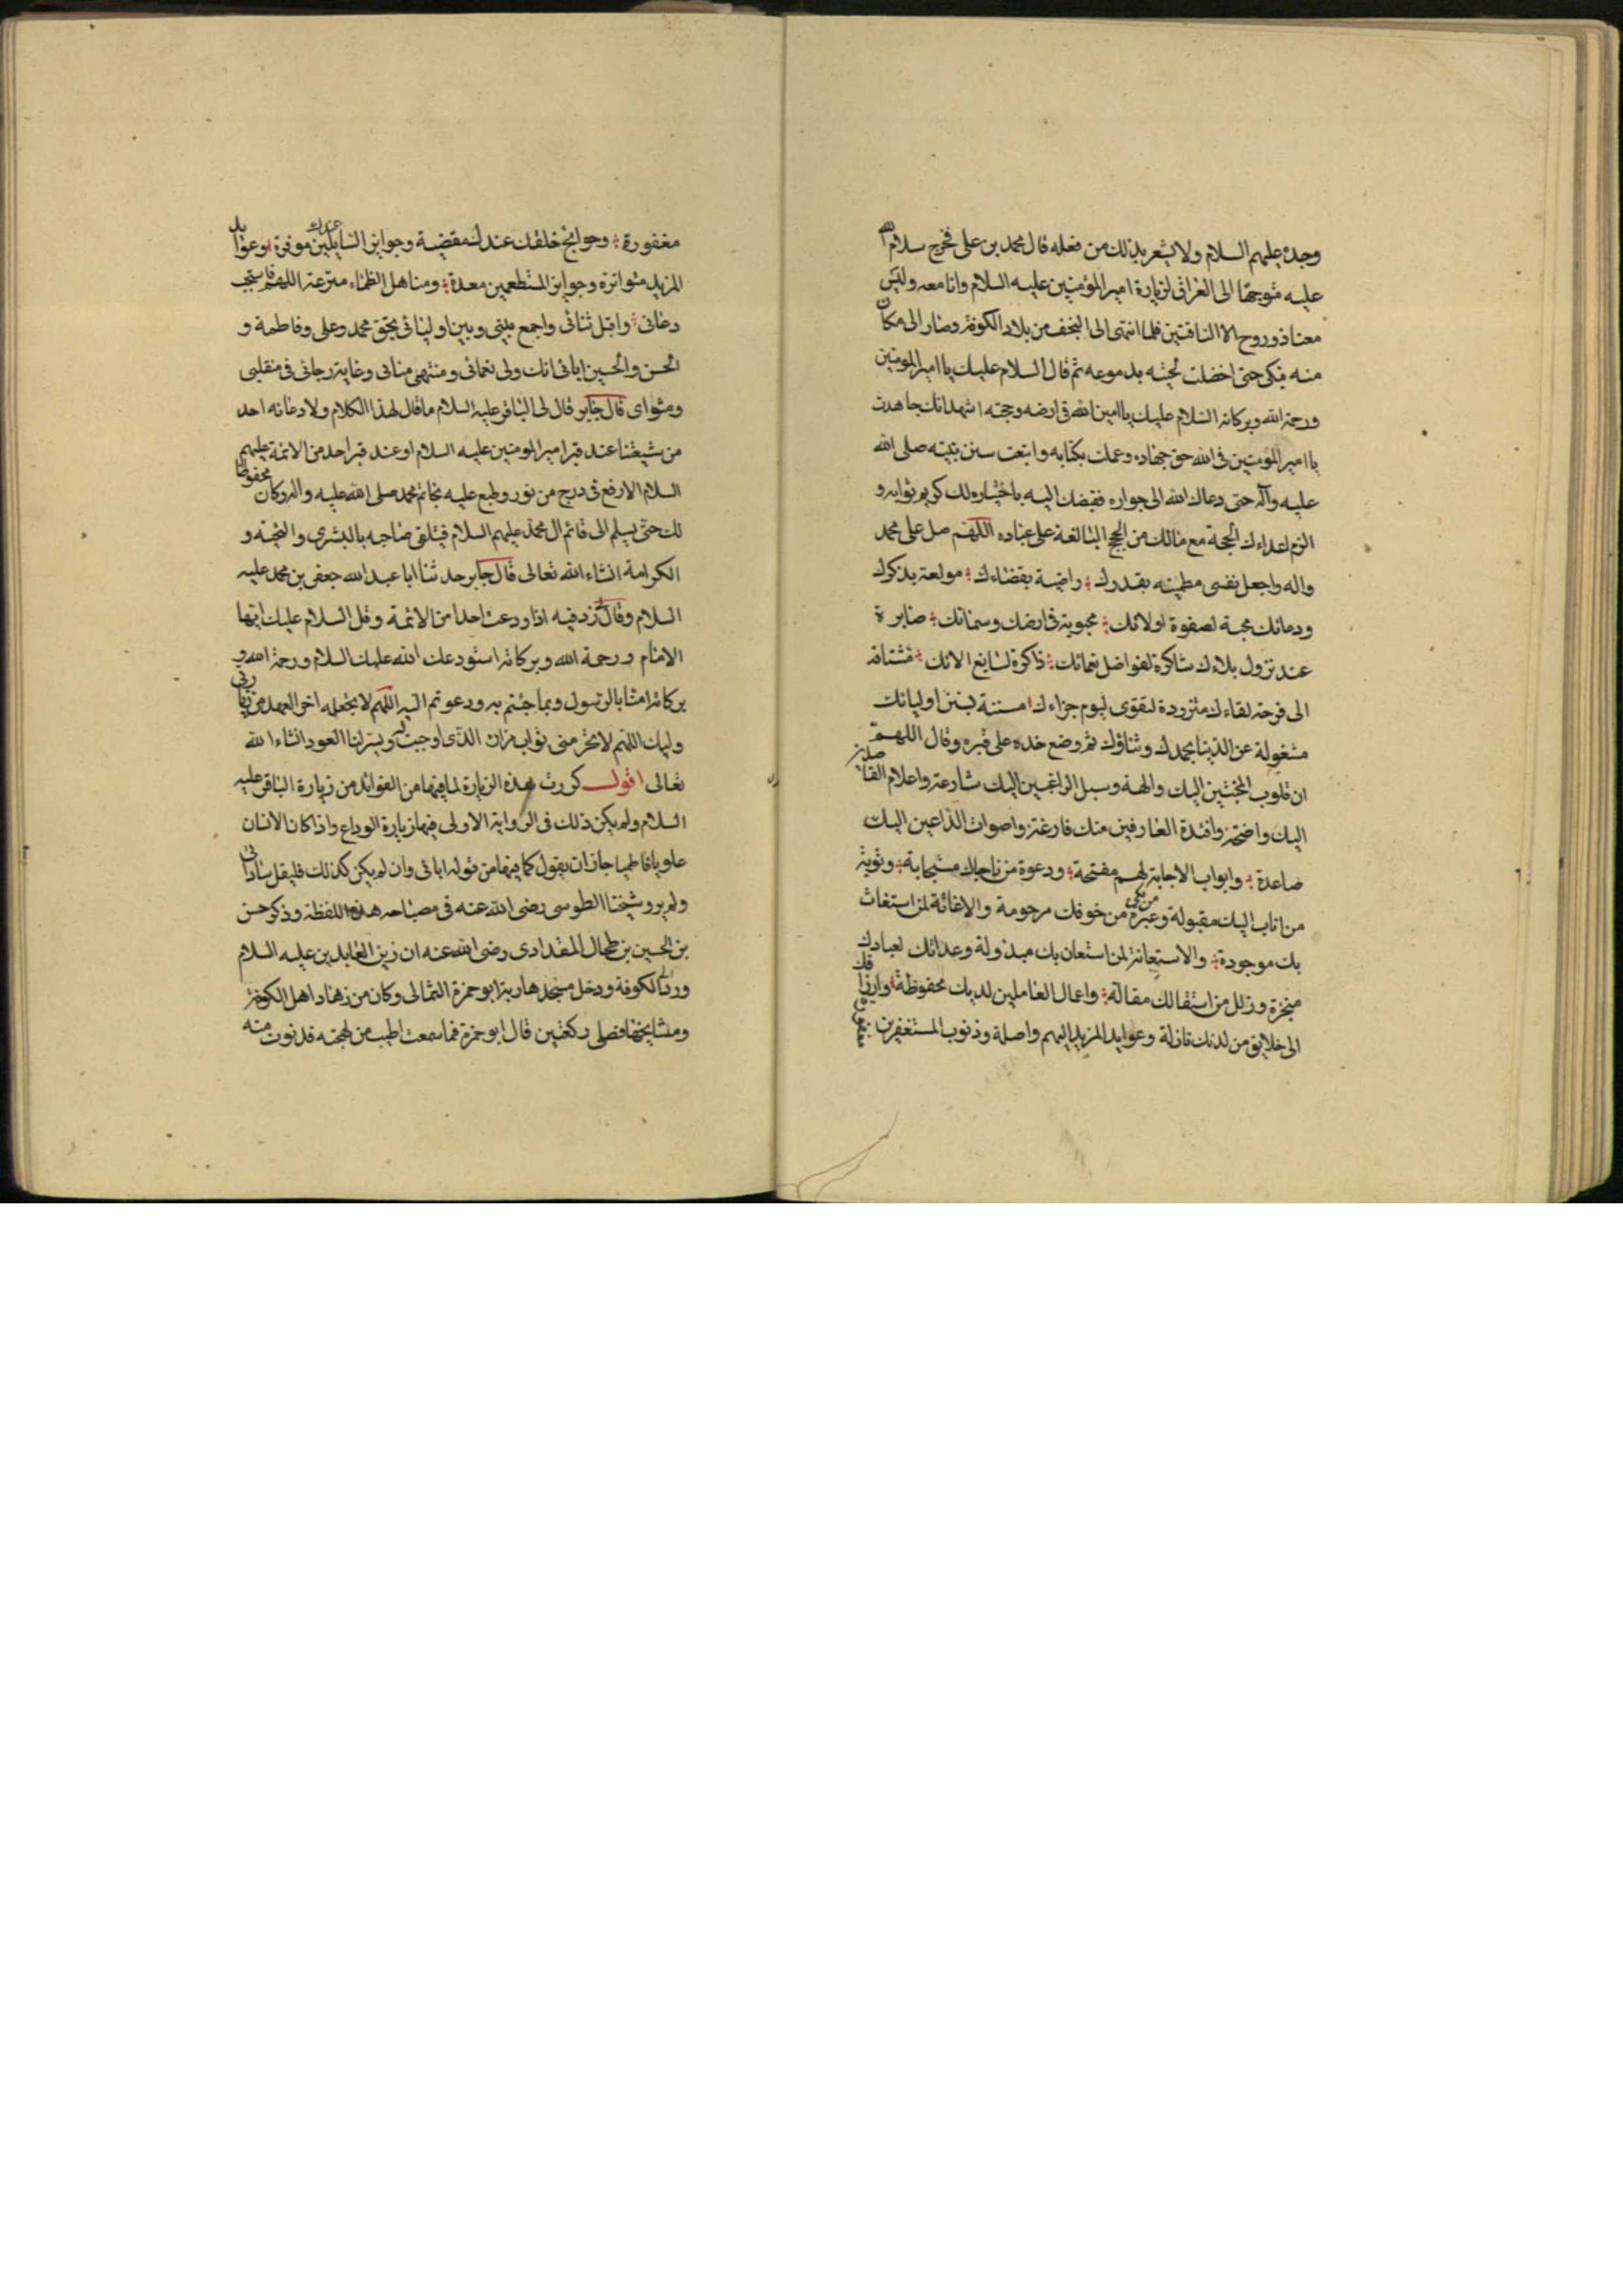 وجده عليهم السلام ولا يشعر بذلك من فعله قال محمد بن علي فخرج سلام الله
عليه متوجها الى العراق لزيارة امير المؤمنين عليه السلام وانا معه وليس
معنا ذو روح الا الناقتين فلما انتهى الى النجف من بلاد الكوفة وصار الى مكان
منه فبكى حتى اخضلت لحيته بدموعه ثم قال السلام عليك يا امير المومنين
ورحمة الله وبركاته السلام عليك يا امين الله فى ارضه وحجته اشهد انك جاهدت
يا امير المومنين فى الله حق جهاده وعملت بكتابه واتبعت سنن نبيه صلى الله
عليه وآله حتى دعاك الله الى جواره فقبضك اليه باختياره لك كريم ثوابه و
الزم اعداءك الحجة مع مالك من الحجج البالغة على عباده اللهم صل على محمد
واله واجعل نفسى مطمئنه بقدرك راضية بقضاءك مولعة بذكرك
ودعائك محبة لصفوة اوليائك محبوبة فى ارضك وسمائك صابرة
عند نزول بلاءك شاكرة لفواضل نعمائك ذاكرة لسابغ الائك مشتاقة
الى فرحة لقاءك متزودة لتقوى ليوم جزاءك مستنة بسنن اوليائك
مشغولة عن الدنيا بحمدك وثناؤك ثم وضع خده على قبره وقال اللهم
ان قلوب المخبتين اليك والهة وسبل الراغبين اليك شارعة واعلام القاصدين
اليك واضحة وافئدة العارفين منك فازعة واصوات الداعين اليك
صاعدة وابواب الاجابة لهم مفتحة ودعوة من ناجاك مستجابة وتوبة
من اناب اليك مقبولة وعبرة من بكى من خوفك مرحومة والاغاثة لمن استغاث
بك موجودة والاستعانة لمن استعان بك مبذولة وعداتك لعبادك
منجزة وزلل من استقالك مقالة واعمال العاملين لديك محفوظة وارزاقك
الى خلايق من لدنك نازلة وعوايد المزيد اليهم واصلة وذنوب المستغفرين
مغفورة وحوائج خلقك عندك مقضية وجوايز السايلين عندك موفرة وعوايد
المزيد متواترة وجوايز المستطعمين معدة ومناهل الظماء مترعة اللهم فاستجب
دعائى واقبل ثنائى واجمع بينى وبين اوليائى بحق محمد وعلى وفاطمة و
الحسن والحسين ابائى انك ولى نعمائى ومنتهى مناى وغاية رجائى فى منقلبى
ومثواى قال جابر قال لى الباقر عليه السلام ما قال لهذا الكلام ولا دعا به احد
من شيعتنا عند قبر امير المومنين عليه السلام او عند قبر احد من الائمة عليهم
السلام الا رفع فى درج من نور وطبع عليه بخاتم محمد صلى الله عليه واله وكان محفوظا
لك حتى يسلم الى قائم ال محمد عليهم السلام فيتلقى صاحبه بالبشرى والتحية و
الكرامة انشاء الله تعالى قال جابر حدثنا ابا عبد الله جعفر بن محمد عليه
السلام وقال لى زد فيه اذا ودعت احدا من الائمة وقل السلام عليك ايها
الامام ورحمة الله وبركاته استودعك الله عليك السلام ورحمة الله و
بركاته امنا بالرسول وبما جئتم به ودعوتم اليه اللهم لا تجعله اخر العهد من زيارتى
وليك اللهم لا تحرمنى ثواب مزاره الذى اوجبت له ويسر لنا العود انشاء الله
تعالى اقول كررت هذه الزيارة لما فيها من الفوائد من زيارة الباقر عليه
السلام ولم يكن ذلك فى الرواية الاولى فيها زيارة الوداع واذا كان الانسان
علويا فاطميا جاز ان يقول كما فيها من قوله ابائى وان لم يكن كذلك فليقل ساداتى
ولم يرو شيخنا الطوسى رضى الله عنه فى مصباحه هذه اللفظة وذكر حسن
بن الحسين بن طحال المقدادى رضى الله عنه ان زين العابدين عليه السلام
ورد الكوفة ودخل مسجدها وبه ابو حمزة الثمالى وكان من زهاد اهل الكوفة
ومشايخها فصلى ركعتين قال ابو حمزة فما سمعت اطيب من لهجته فدنوت منه